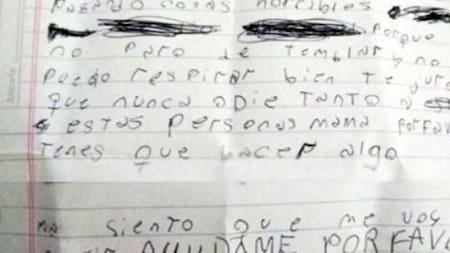 cosas horribles
porque
no paro de temblar y no
puedo respirar bien te jur
que nunca odie tanto a
estas personas mama porfav
tenes que hacer algo
siento que me vos
AYUDAME PORFAV